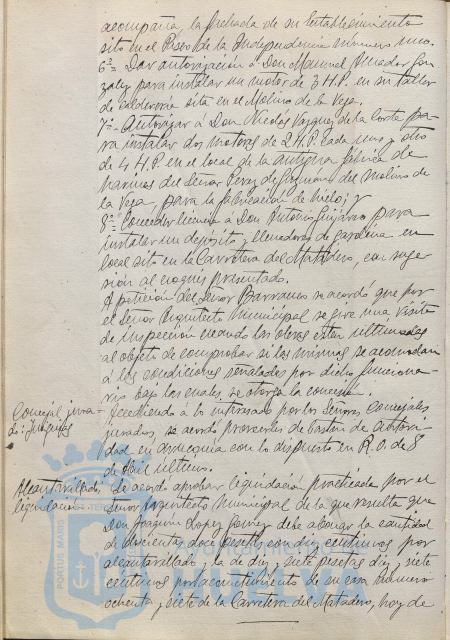 acompaña, la fachada de su establecimiento
sito en el Paseo de la Independencia número uno.
6º= Dar autorización á Don Manuel Veneder Gon
zalez para instalar un motor de 3 H.P. en su taller
de calderería sito en el Molino de la Vega.
7º= Autorizar á Don Nicolás Vazquez de la Corte pa
ra instalar dos motores de 2 H.P. cada uno y otro
de 4 H.P. en el local de la antigua fábrica de
harinas del Señor Perez de Guzman del Molino de
la Vega, para la fabricación de hielo; y
8º= Conceder licencia á Don Antonio Guijarro para
instalar un depósito y llenadora de gasolina en
local sito en la Carretera del Matadero, con suge
sión al croquis presentado.
A petición del Señor Barranco se acordó que por
el Señor Arquitecto Municipal se gire una visita
de inspección cuando las obras esten ultimadas
al objeto de comprobar si las mismas se acomodan
á las condiciones señaladas por dicho funciona
rio bajo las cuales se otorga la concesión.
Concejal jura-
do: Insignias
Accediendo á lo interesado por los Señores Concejales
jurados, se acordó proveerles de bastón de autori
dad en armonía con lo dispuesto en R.O. de 8
de Abril último.
Alcantarillado;
liquidación.
Se acordó aprobar liquidación practicada por el
Señor Arquitecto Municipal de la que resulta que
Don Joaquin Lopez Gomez debe abonar la cantidad
de doscientas doce pesetas con diez centimos por
alcantarillado, y la de diez y siete pesetas diez y siete
centimos por acometimiento de su casa número
ochenta y siete de la Carretera del Matadero, hoy de
PORTUS MARIS
Ayuntamiento de
HUELVA